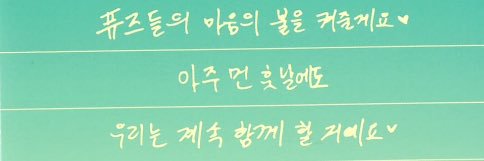 퓨즈들의 마음의 불을 켜줄게요♥
아주 먼 훗날에도
우리는 계속 함께 할 거예요♥